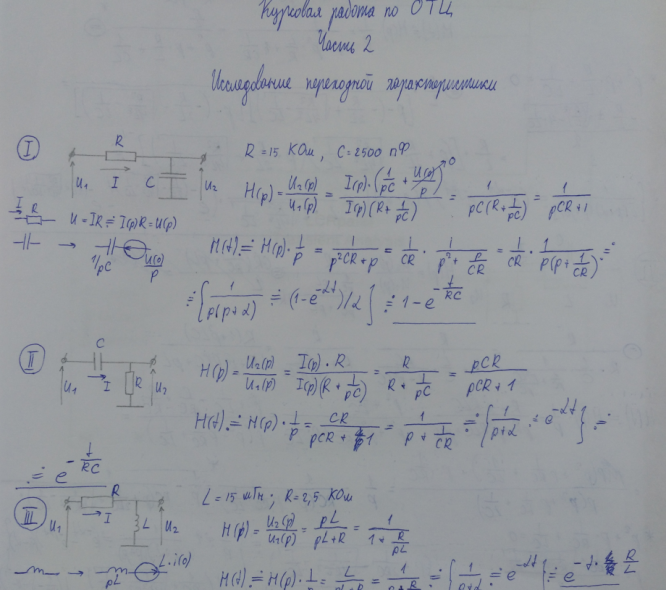 Курсовая работа по ОТЦ
Часть 2
Исследование переходной характеристики
I R I C U₁ U₂ R = 15 КОм, C = 2500 пФ
H(p) = U₂(p)/U₁(p) = I(p)·(1/pC + U(o)/p)→0 / I(p)(R + 1/pC) = 1/pC(R + 1/pC) = 1/pCR+1
I R U = IR ≓ I(p)R = U(p)
→ 1/pC U(o)/p H(t) ≓ H(p)·1/p = 1/p²CR+p = 1/CR · 1/p²+p/CR = 1/CR · 1/p(p+1/CR) ≓
≓ {1/p(p+α) ≓ (1-e^-αt)/α} ≓ 1-e^-t/RC
II C I R U₁ U₂ H(p) = U₂(p)/U₁(p) = I(p)·R/I(p)(R + 1/pC) = R/R + 1/pC = pCR/pCR+1
H(t) ≓ H(p)·1/p = CR/pCR+1 = 1/p+1/CR ≓ {1/p+α ≓ e^-αt} ≓
≓ e^-t/RC
III R I L U₁ U₂ L = 15 мГн; R = 2,5 КОм
H(p) = U₂(p)/U₁(p) = pL/pL+R = 1/1+R/pL
→ pL L·i(o) H(t) ≓ H(p)·1/p = L/pL+R = 1/p+R/L ≓ {1/p+α ≓ e^-αt} ≓ e^-t·R/L